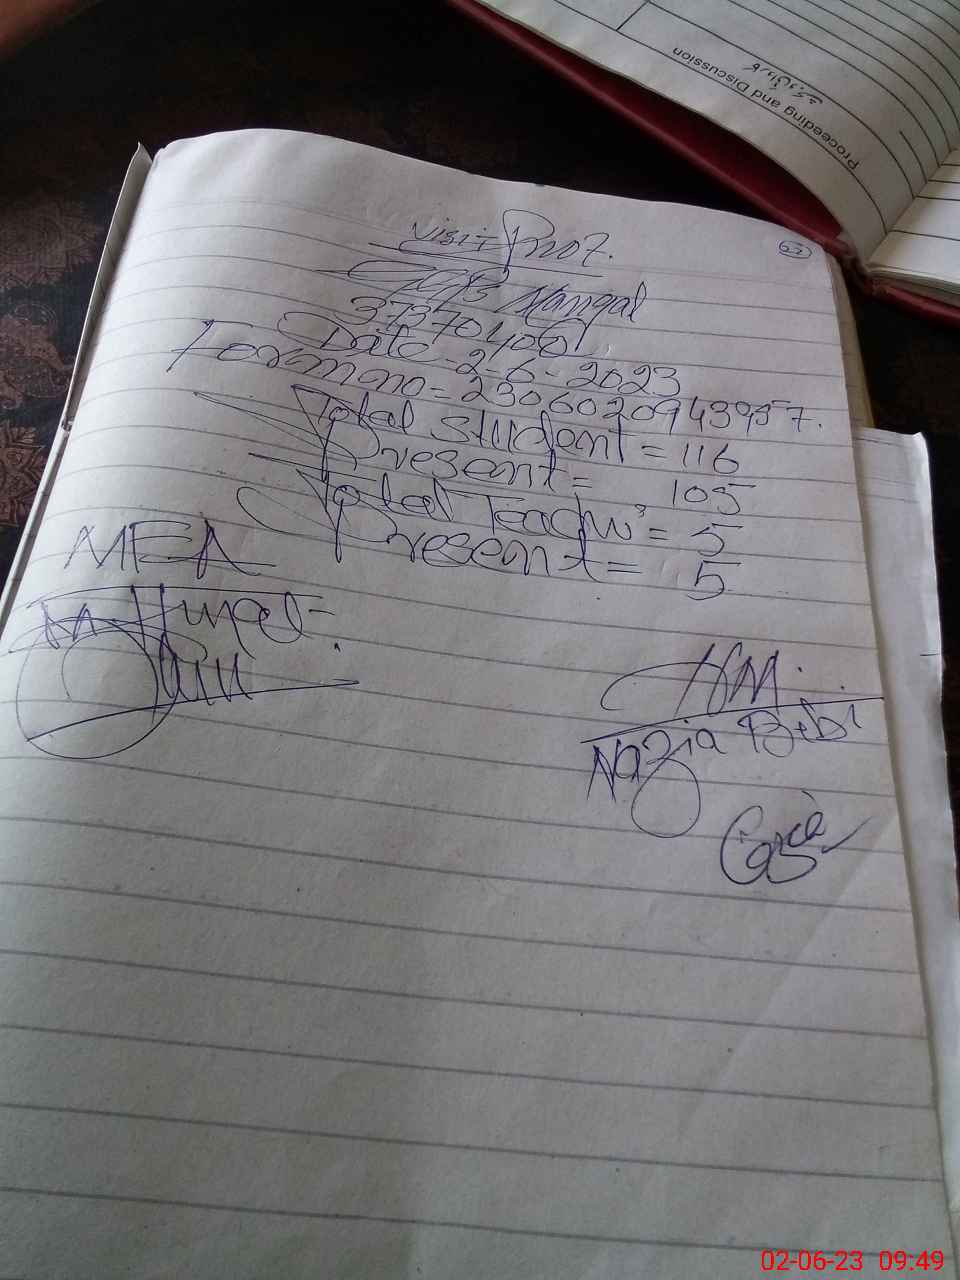 Proceeding and Discussion
کارروائی
63
Visit Proof.
GGPS Mangal
37370406
Date 2-6-2023
Form no = 230602094395957.
Total Student = 116
Present = 105
Total Teachers = 5
Present = 5
MEA
HM.
Nazia Bibi
02-06-23 09:49